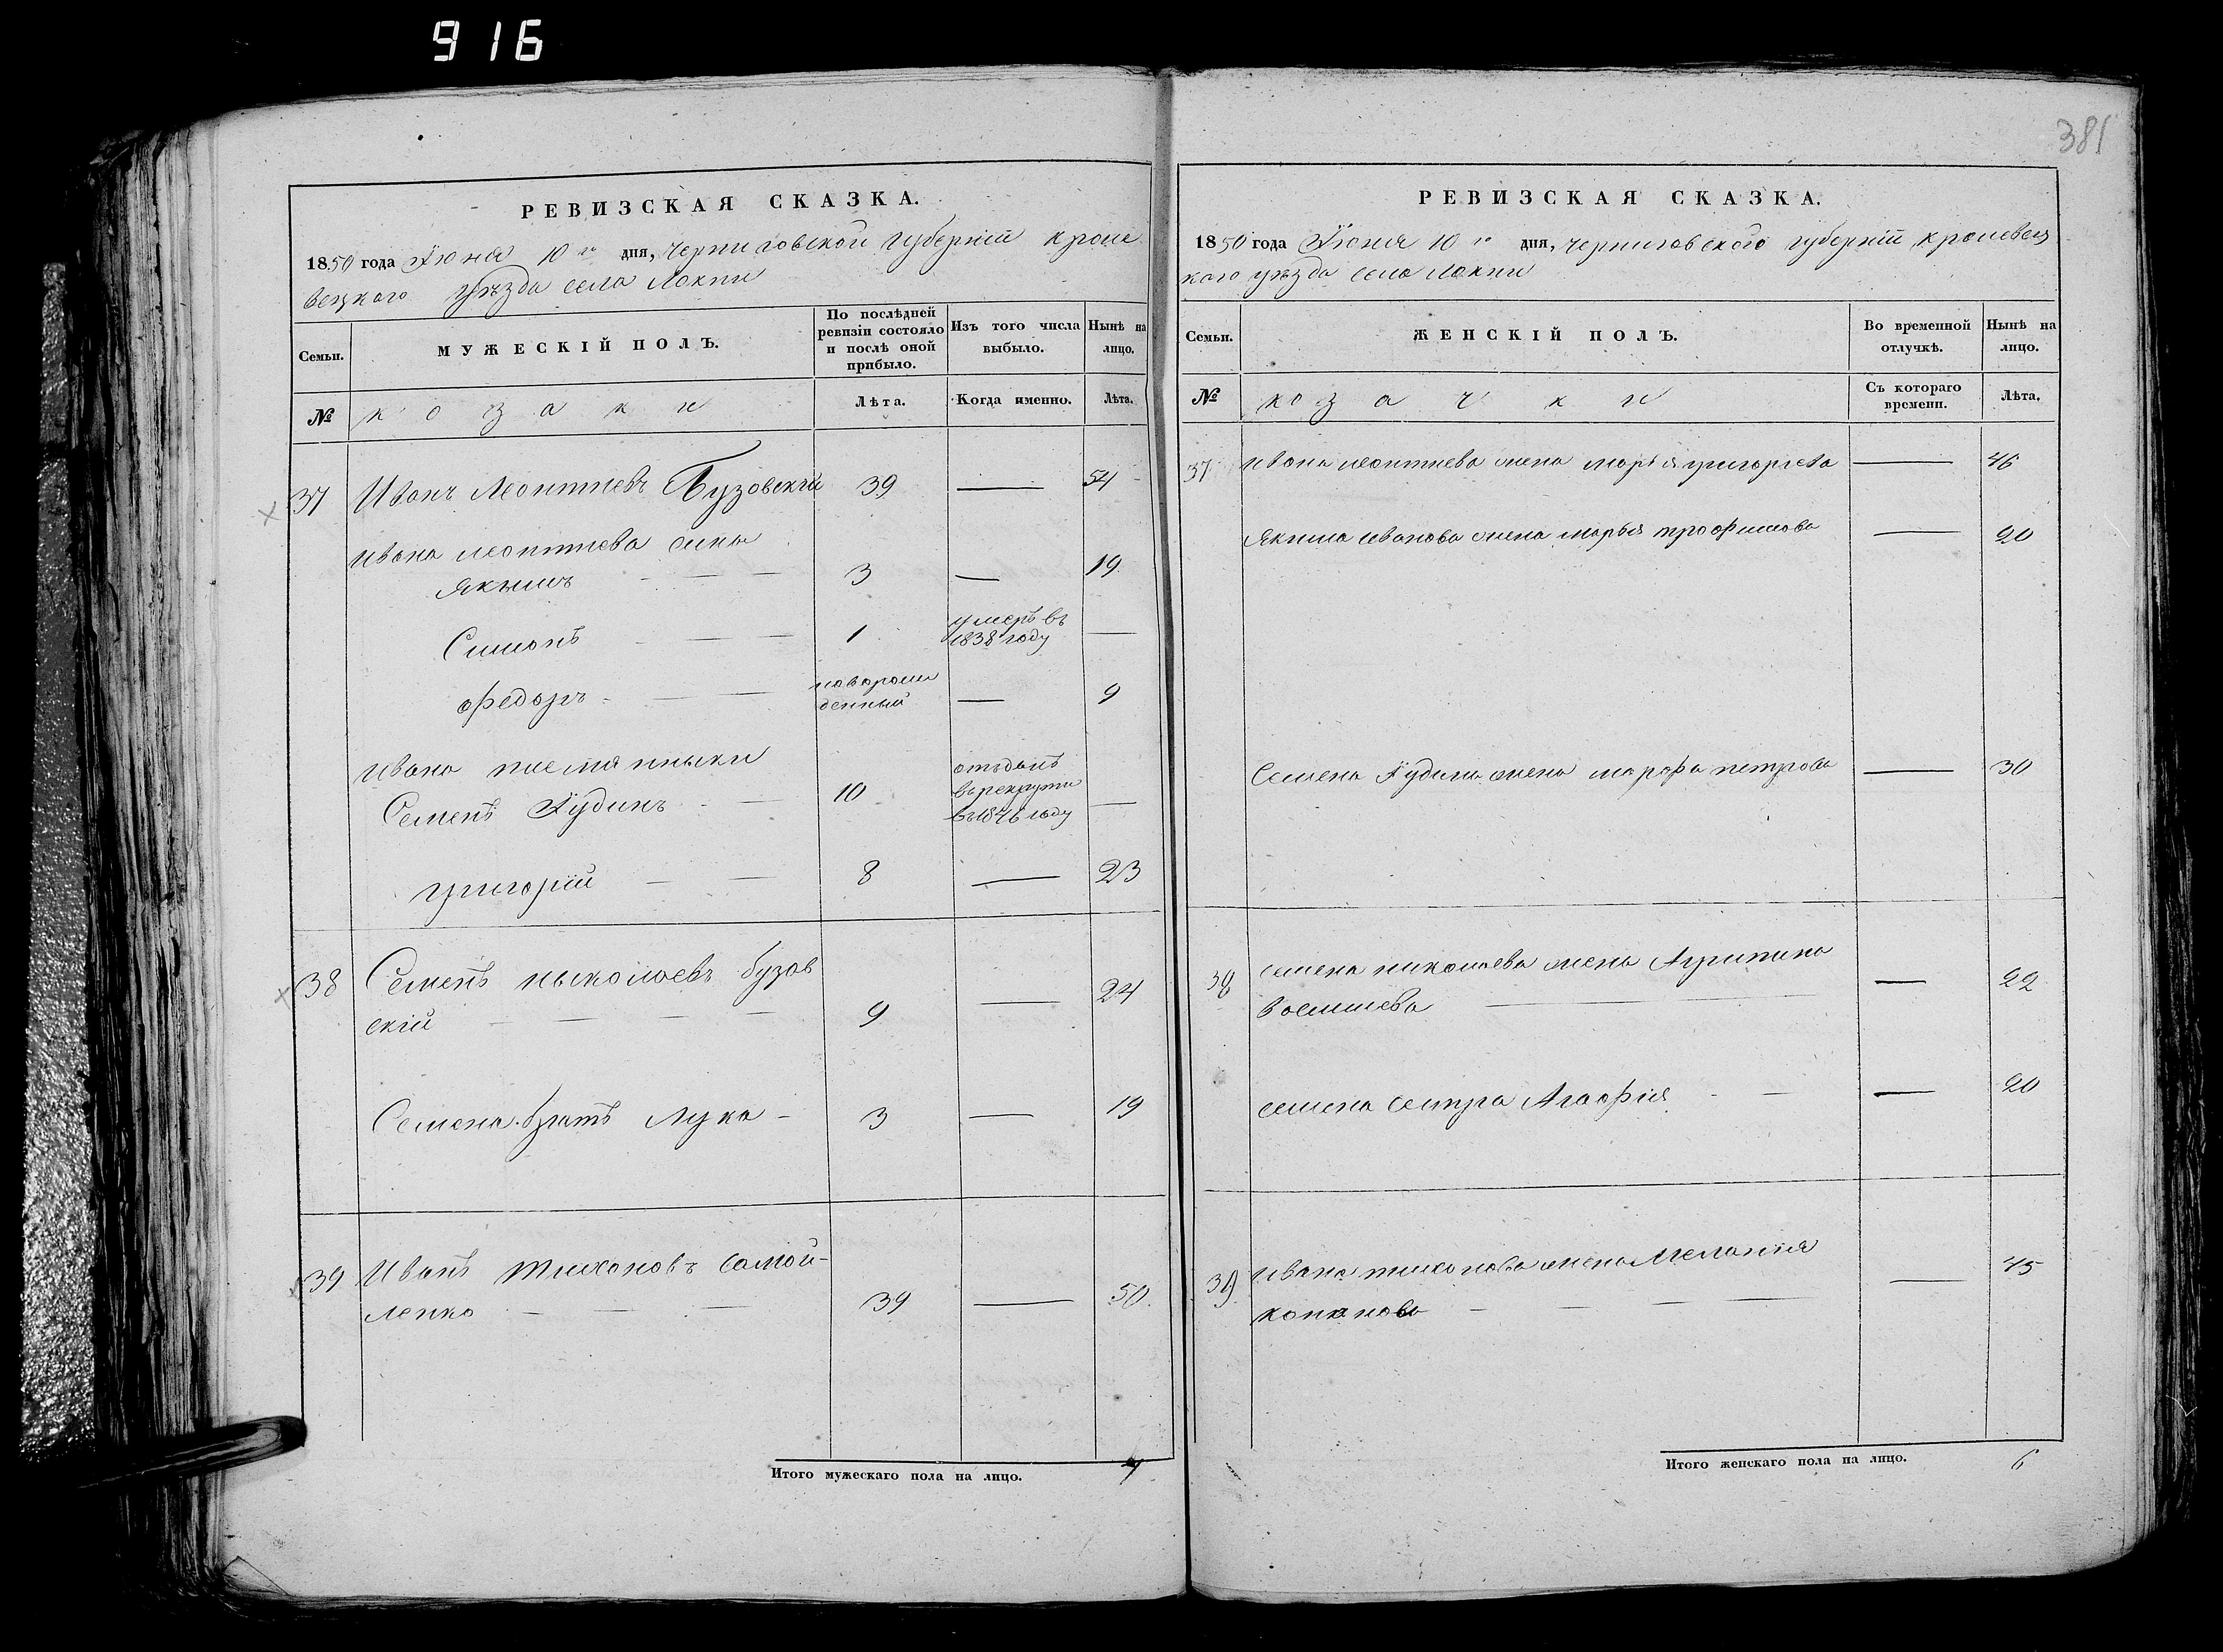 916
РЕВИЗСКАЯ СКАЗКА.
1850 года Іюня 10 го дня, Черниговской губерніи кроле
вецкаго уѣзда села Локни
Семьи.
МУЖЕСКІЙ ПОЛЪ.
По послѣдней
ревизіи состояло
и послѣ оной
прибыло.
Изъ того числа
выбыло.
Нынѣ на
лицо.
№
козаки
Лѣта.
Когда именно.
Лѣта.
37 Иванъ Леонтиевъ Бузовскій 39 — 54
Ивана леонтиева сины
Якимъ — — — 3 — 19
Симонъ — — — 1 умеръ въ 1838 году —
Федоръ — — — новорож
денный — 9
Ивана племянныки
Семенъ Іудинъ — — 10 отъданъ
въ рекруты
въ 1846 году —
григорій — — 8 — 23
38 Семенъ ныколаевъ бузов
скій — — — — 9 — 24
Семена братъ Лука — 3 — 19
39 Иванъ тихоновъ самой-
ленко — — — 39 — 50
Итого мужескаго пола на лицо. 7
381
РЕВИЗСКАЯ СКАЗКА.
1850 года Іюня 10 го дня, черниговского губерніи кролевец
кого уѣзда села Локни
Семьи.
ЖЕНСКІЙ ПОЛЪ.
Во временной
отлучкѣ.
Нынѣ на
лицо.
№
козачки
Съ котораго
времени.
Лѣта.
37 Ивана леонтиева жена марья григорьева — 46
Якима иванова жена марья трофимова — 20
Семена Іудина жена марфа петрова — 30
38 семена николаева жена Агрипина — 22
семена сестра Агафия — — — 20
39 Ивана тихонова жена Меланія — 45
Итого женскаго пола на лицо. 6